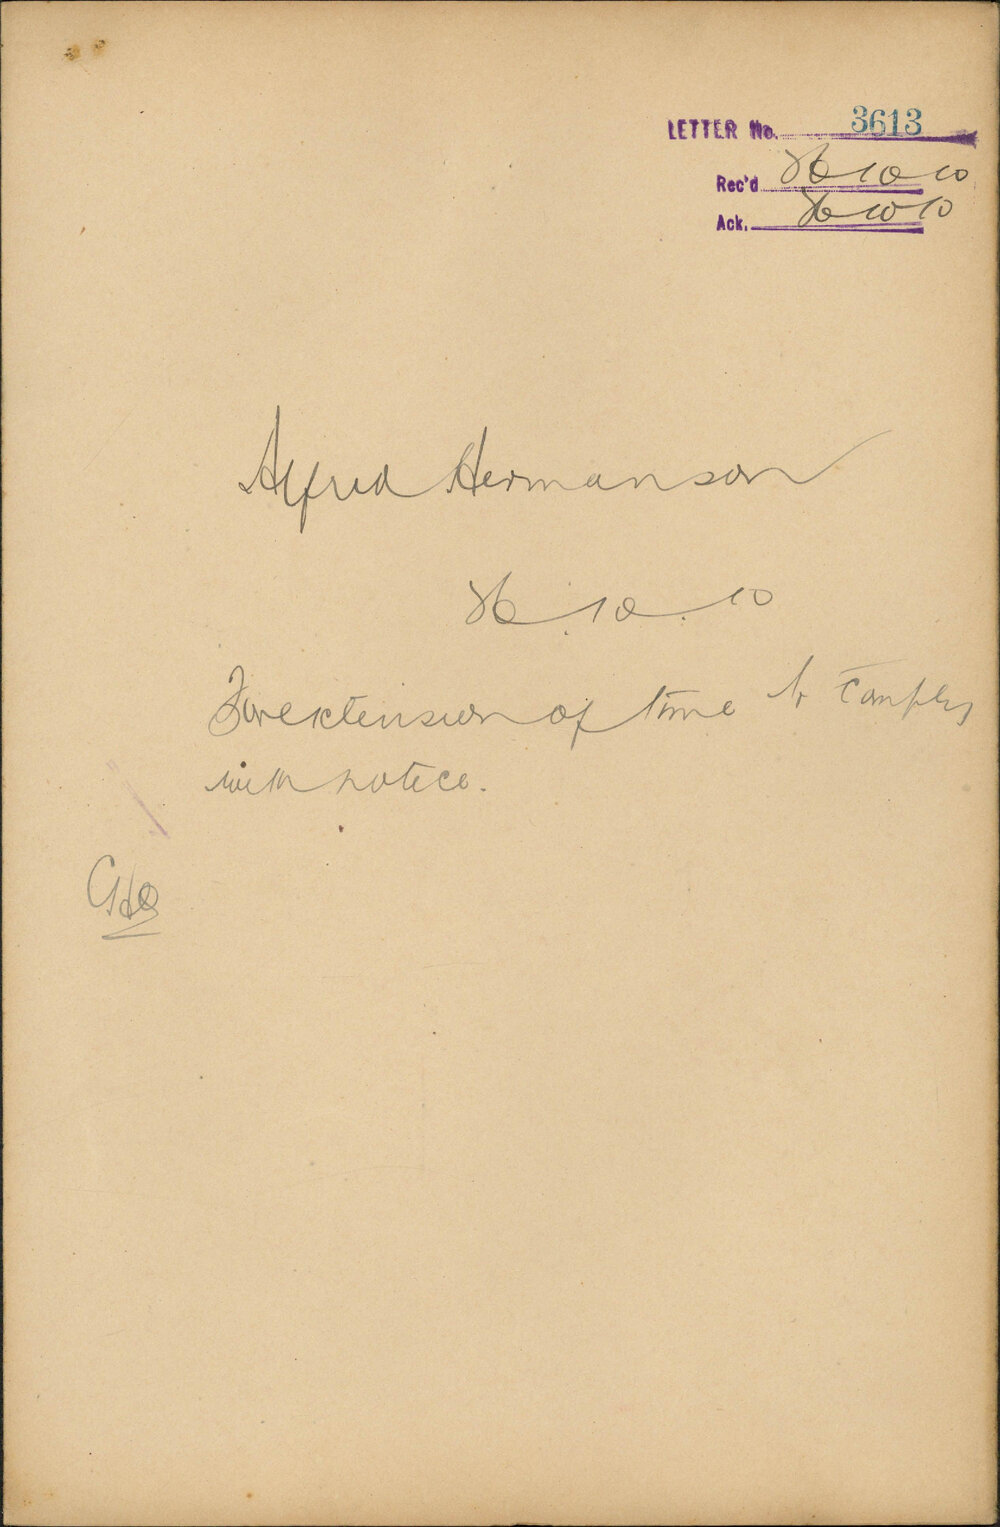 LETTER No. 3613
Rec'd 26 10 10
Ack. 26 10 10
Alfred Hermanson
26.10.10
For extension of time to comply
with notice.